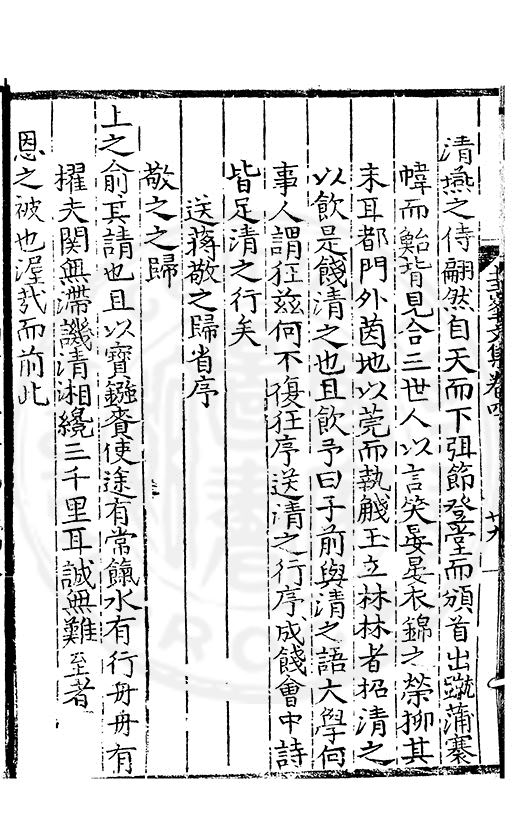 清燕之侍翩然自天而下弭節登堂而頫首出蹴蒲褰
幃而鮐背見合三世人以言笑晏晏衣錦之榮抑其
末耳都門外茵地以莞而執觴玉立林林者招清之
以飲是餞清之也且飲予曰子前與清之語大學何
事人謂狂玆何不復狂序送清之行序成餞會中詩
皆足清之行矣
送蔣敬之歸省序
敬之之歸
上之俞其請也且以寶鏹賚使途有常餼水有行舟舟有
擢夫関無滯譏清湘纔三千里耳誠無難至者
恩之被也渥哉而前此
文集卷四
十九